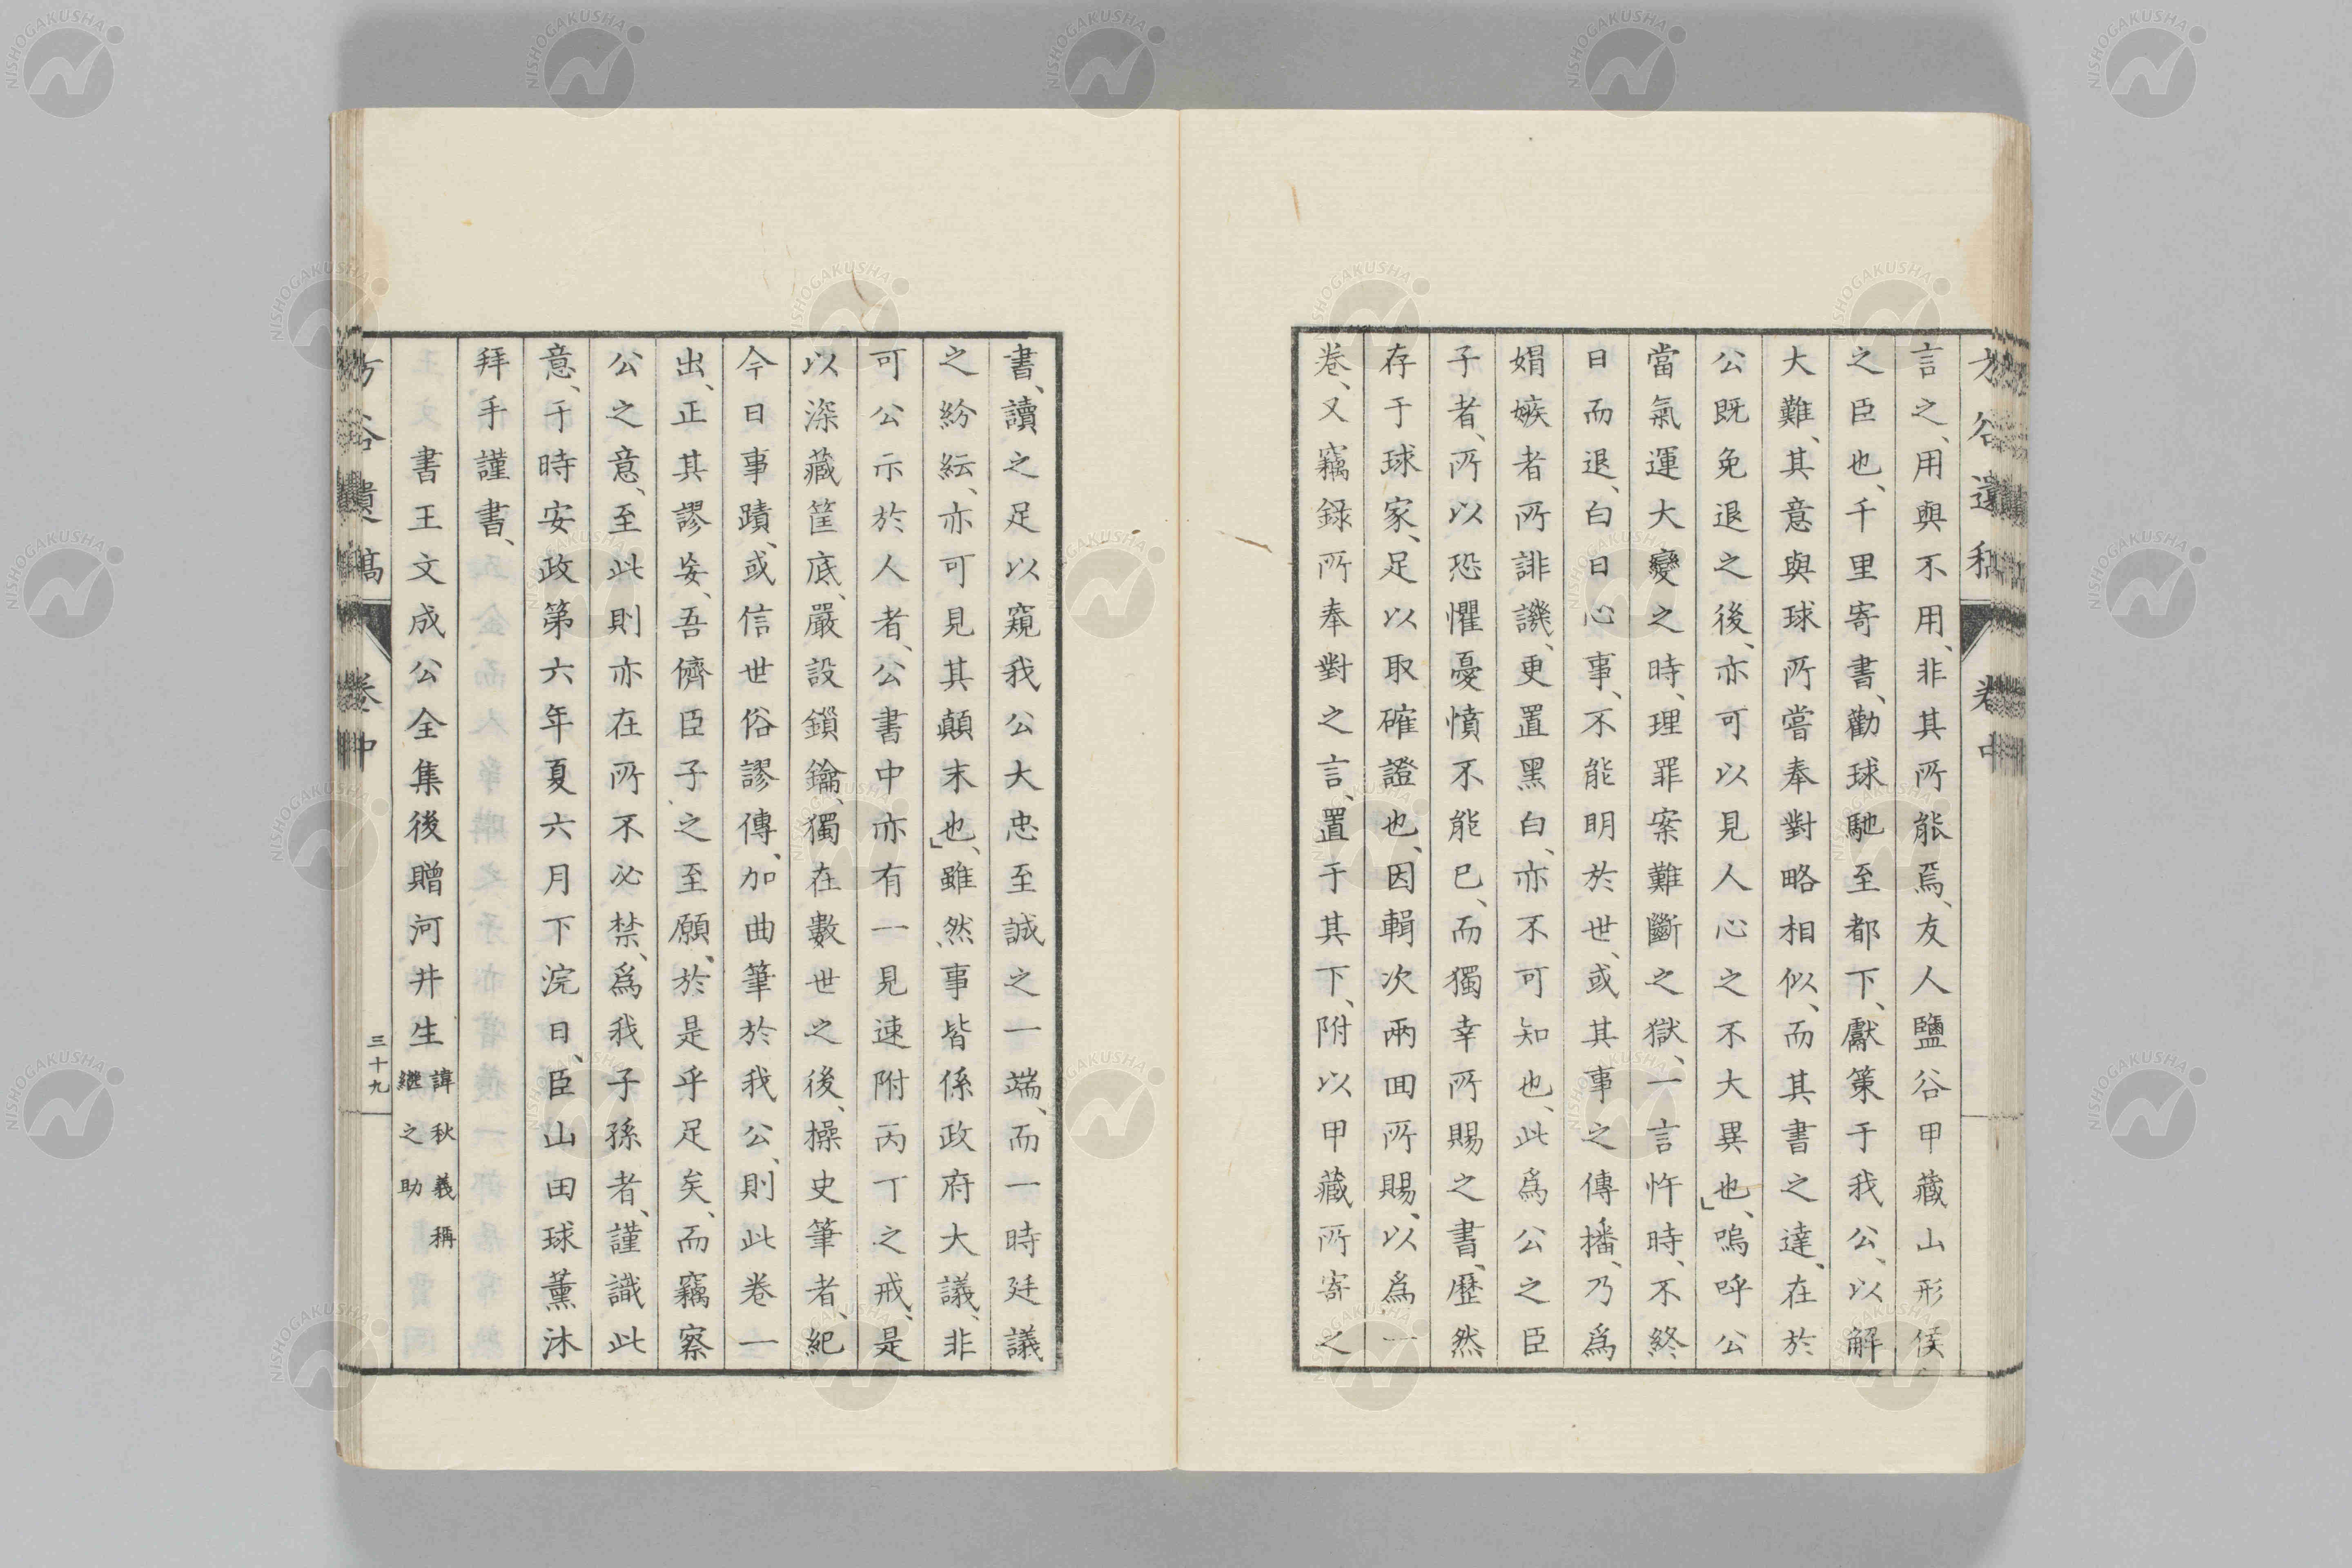 言之、用與不用、非其所能焉、友人鹽谷甲藏山形侯
之臣也、千里寄書、勸球馳至都下、獻策于我公、以解
大難、其意與球所嘗奉對略相似、而其書之達、在於
公既免退之後、亦可以見人心之不大異也」、嗚呼公
當氣運大變之時、理罪案難斷之獄、一言忤時、不終
日而退、白日心事、不能明於世、或其事之傳播、乃爲
娼嫉者所誹譏、更置黑白、亦不可知也、此爲公之臣
子者、所以恐懼憂憤不能已、而獨幸所賜之書、歷然
存于球家、足以取確證也、因輯次兩回所賜、以爲一
卷、又竊錄所奉對之言、置于其下、附以甲藏所寄之
書、讀之足以窺我公大忠至誠之一端、而一時廷議
之紛紜、亦可見其顛末也」、雖然事皆係政府大議、非
可公示於人者、公書中亦有一見速附丙丁之戒、是
以深藏筐底、嚴設鎖鑰、獨在數世之後、操史筆者、紀
今日事蹟、或信世俗謬傳、加曲筆於我公、則此卷一
出、正其謬妄、吾儕臣子之至願、於是乎足矣、而竊察
公之意、至此則亦在所不必禁、爲我子孫者、謹識此
意、于時安政第六年夏六月下浣日、臣山田球薰沐
拜手謹書、
書王文成公全集後贈河井生 諱秋義稱繼之助
方谷遺稿 卷中 三十九
NISHOGAKUSHA